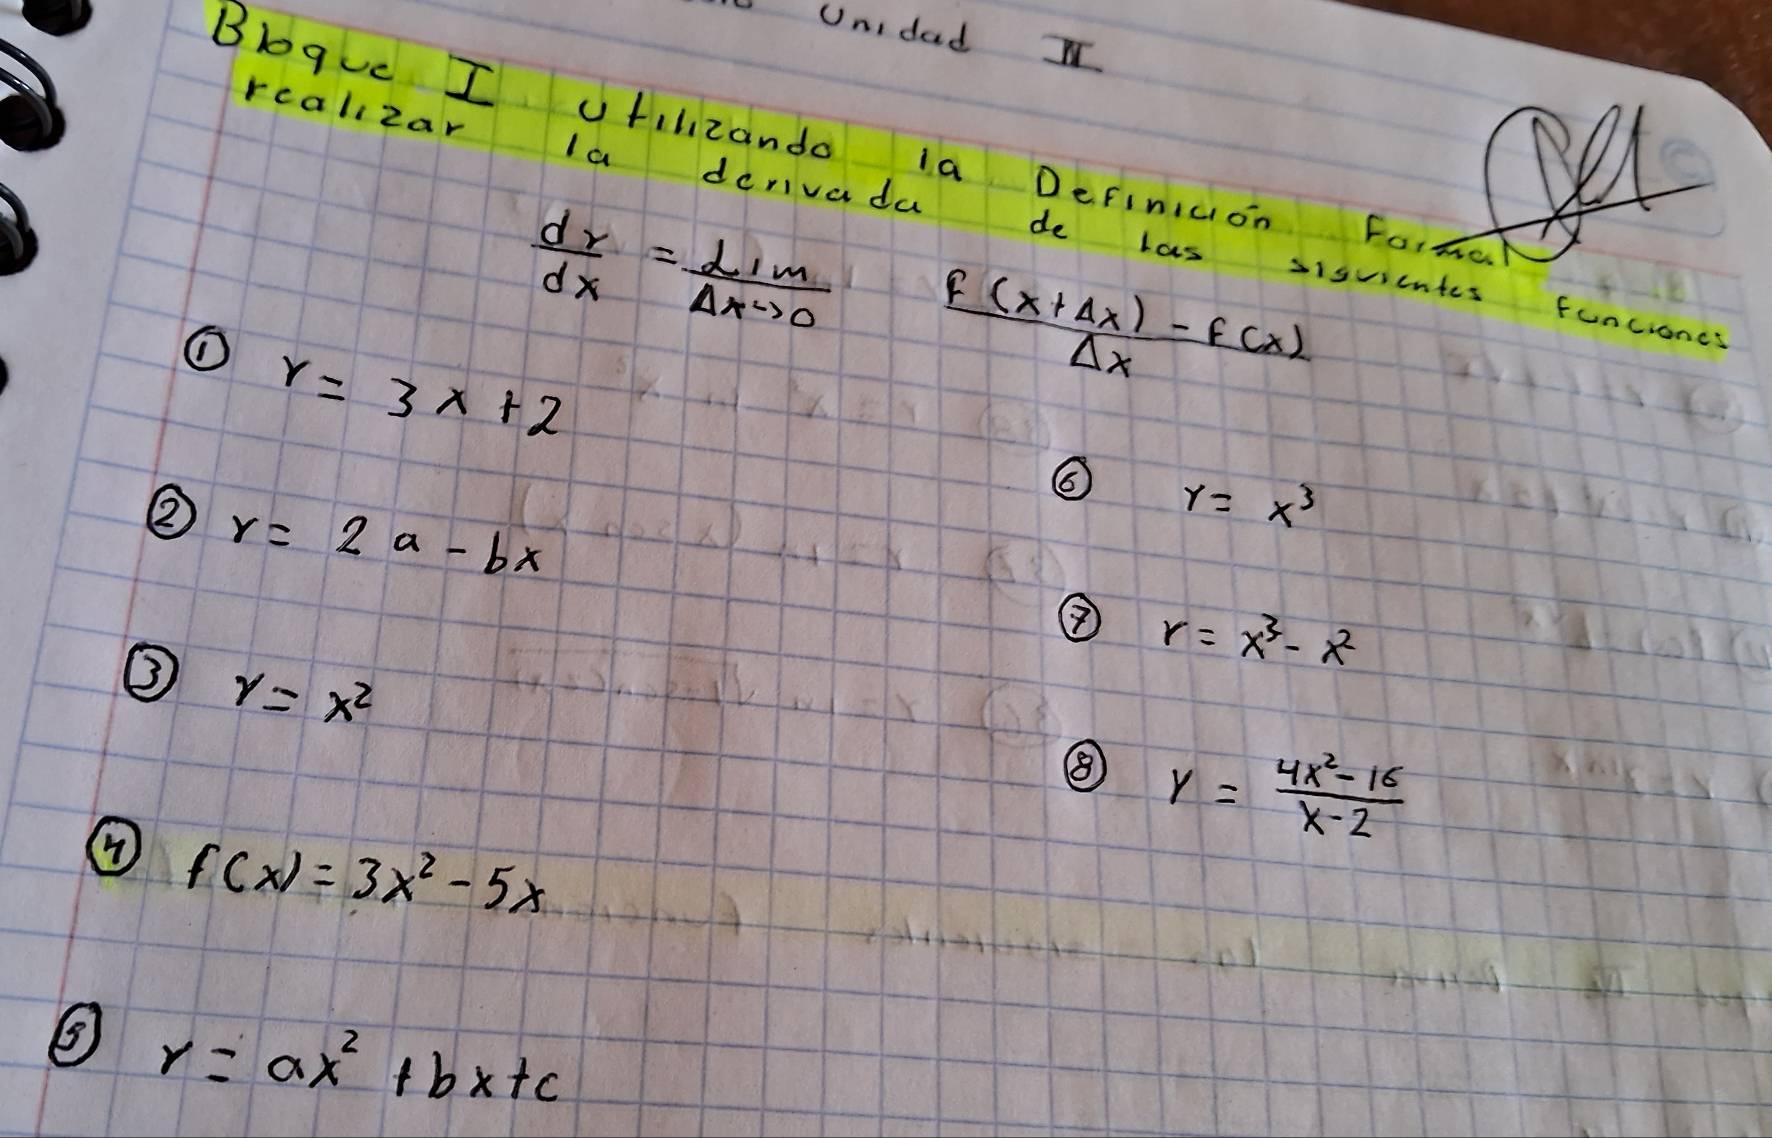 Unidad II
Bloque I utilizando la Definición Formal
realizar la derivada de las siguientes funciones
dy/dx = Lim Δx->0 f(x+Δx) - f(x) / Δx
① y = 3x+2
② y = 2a - bx
③ y = x²
④ f(x) = 3x² - 5x
⑤ y = ax² + bx+c
⑥ y = x³
⑦ y = x³ - x²
⑧ y = 4x² - 16 / x - 2